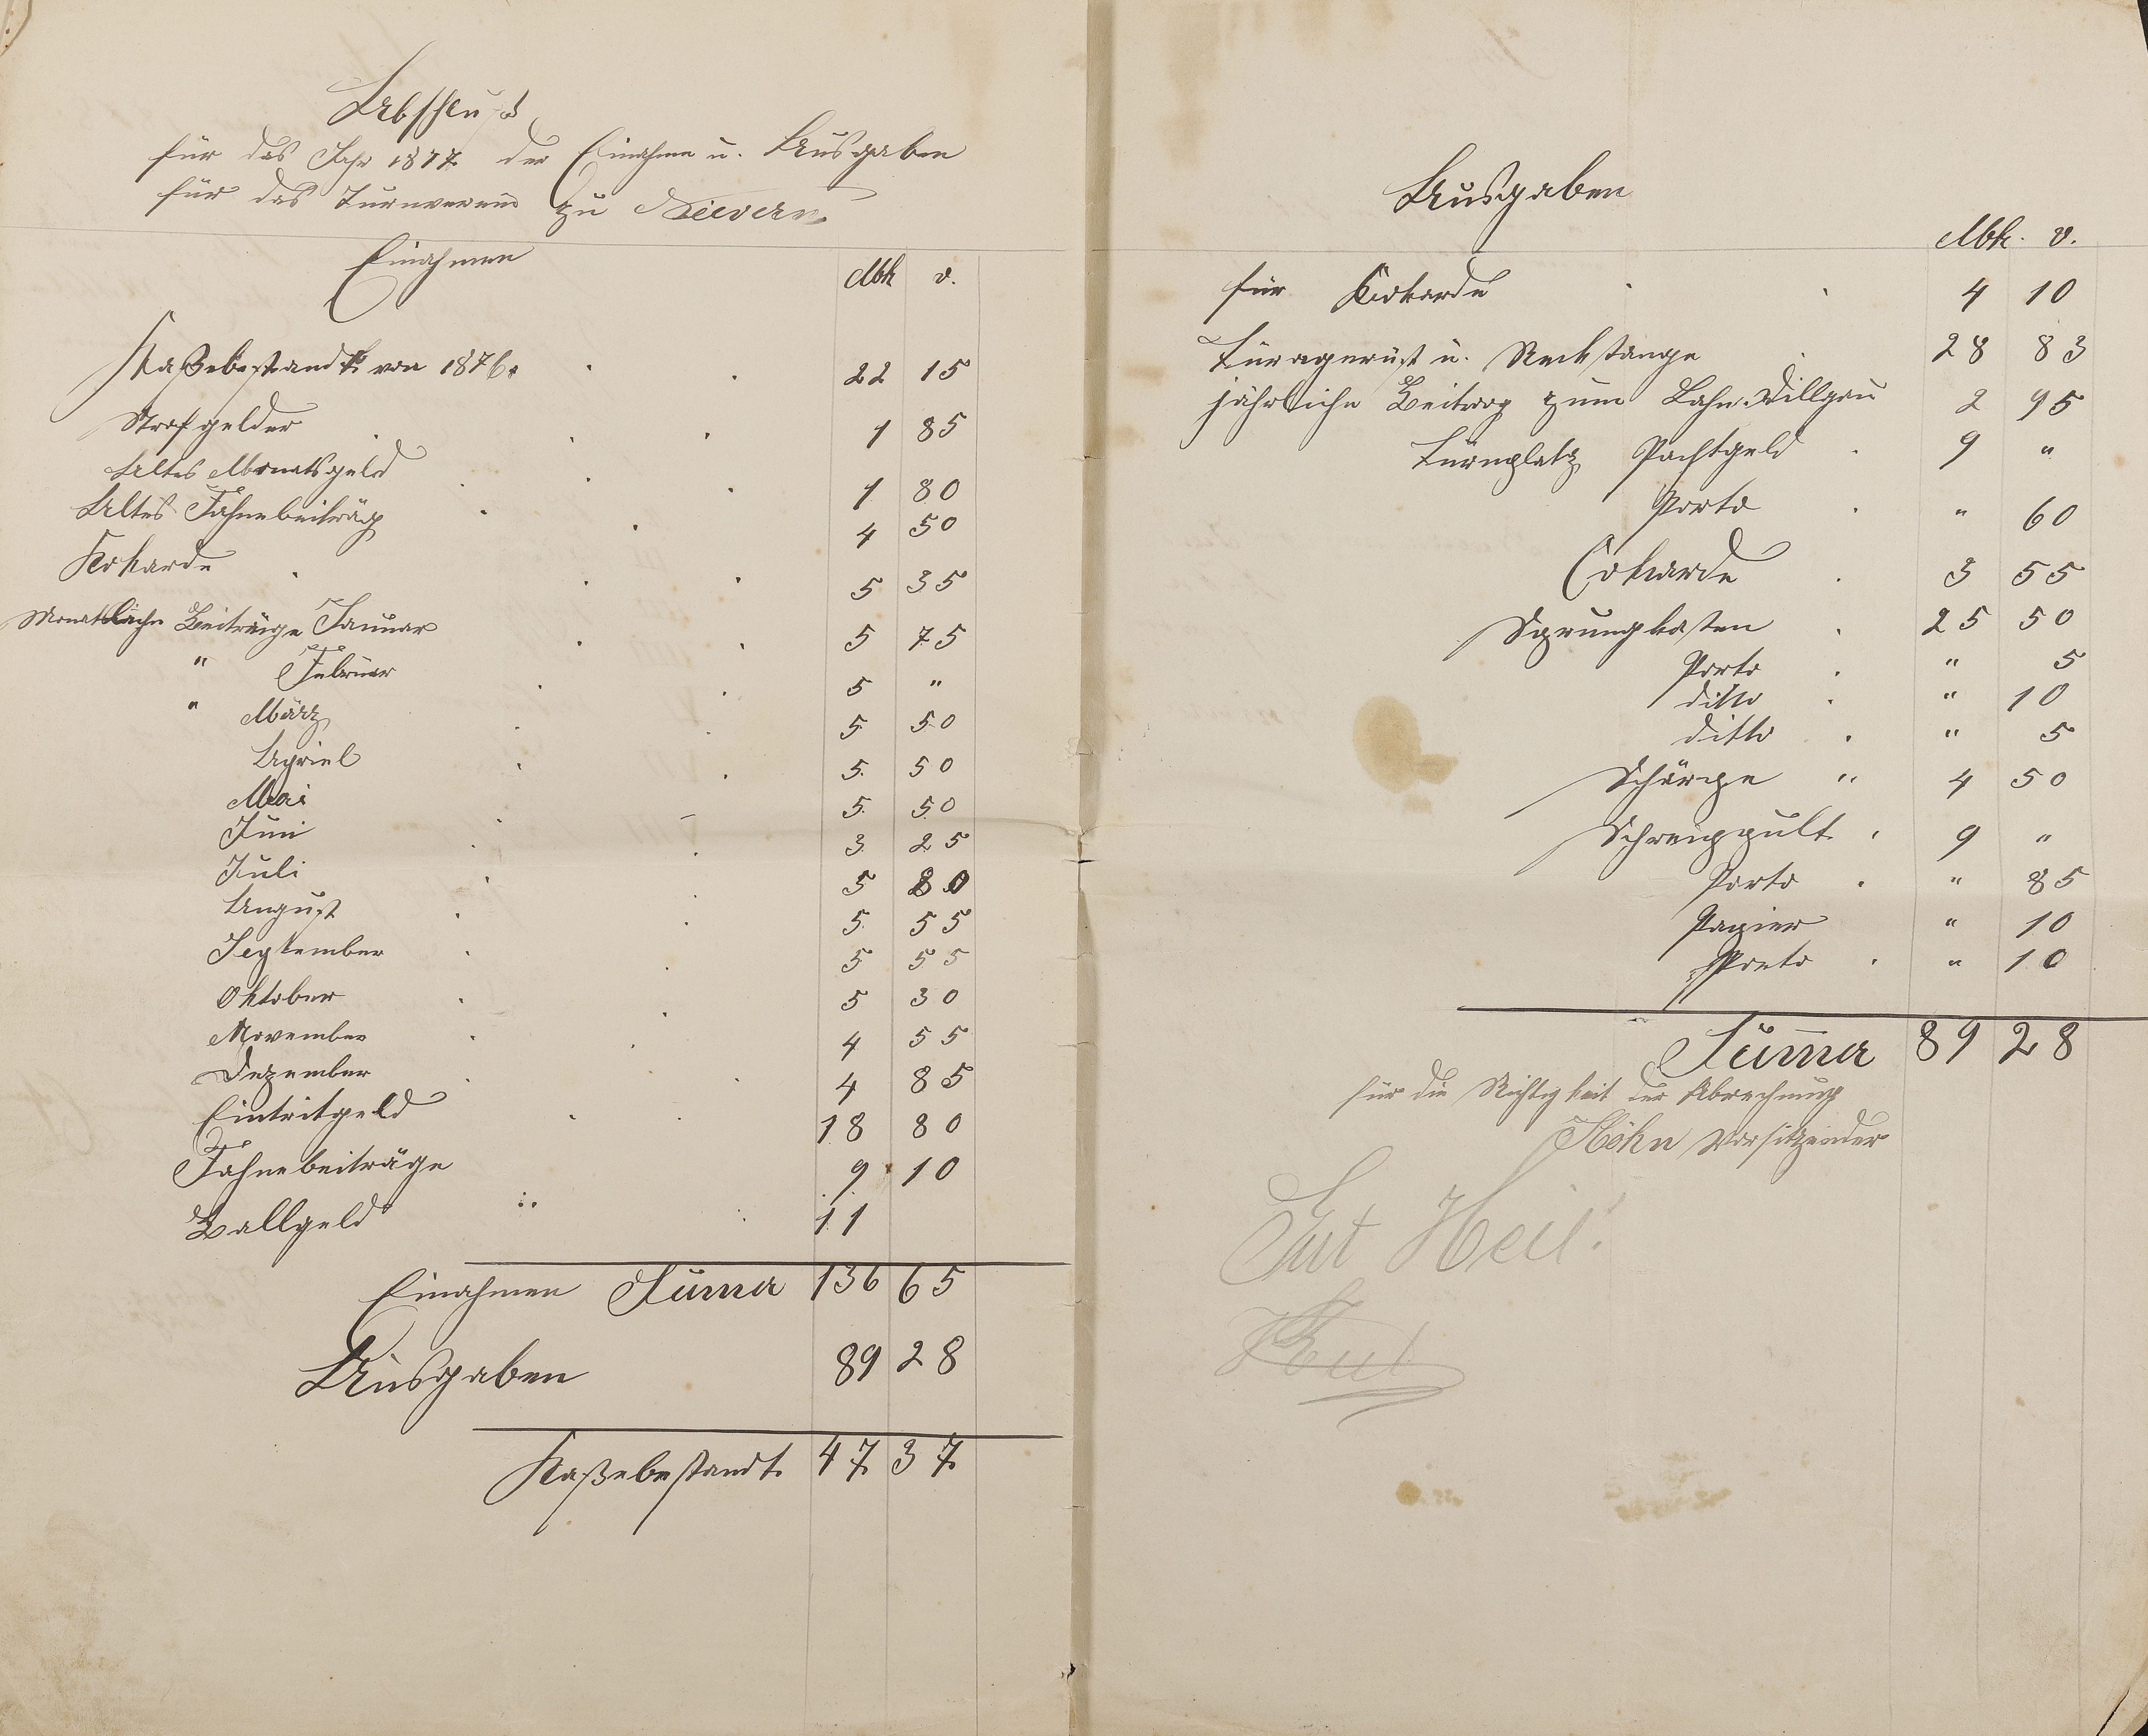 Abschluß
für das Jahr 1877 der Einahme u. Ausgaben
für das Turnverein zu Nievern
Einahmen
Mk ₰.
Kaßebestandt von 1876. 22 15
Strafgelder 1 85
Altes Monatsgeld 1 80
Altes Fahnebeiträg 4 50
Kokarde 5 35
Monatliche Beiträige Januar 5 75
" Februar 5 "
" März 5 50
Apriel 5 50
Mai 5 50
Juni 3 25
Juli 5 80
August 5 55
September 5 55
Oktober 5 30
November 4 55
Dezember 4 85
Eintritgeld 18 80
Fahnebeiträge 9 10
Ballgeld 11
Einahmen Suma 136 65
Ausgaben 89 28
Kaßebestandt. 47 37
Ausgaben
Mk. ₰.
für Kokarde 4 10
Türngerüst u. Reckstange 28 83
jährliche Beitrag zum Lahn-Dillgau 2 95
Türnplatz Pachtgeld 9 "
Porto " 60
Cokarde 3 55
Sprungkasten 25 50
Porto " 5
ditto " 10
ditto " 5
Schärpe " 4 50
Schreippult 9 "
Porto " 85
Papier " 10
Porto " 10
Suma 89 28
für die Richtigkeit der Abrechnung
Höhn Vorsitzender
Gut Heil!